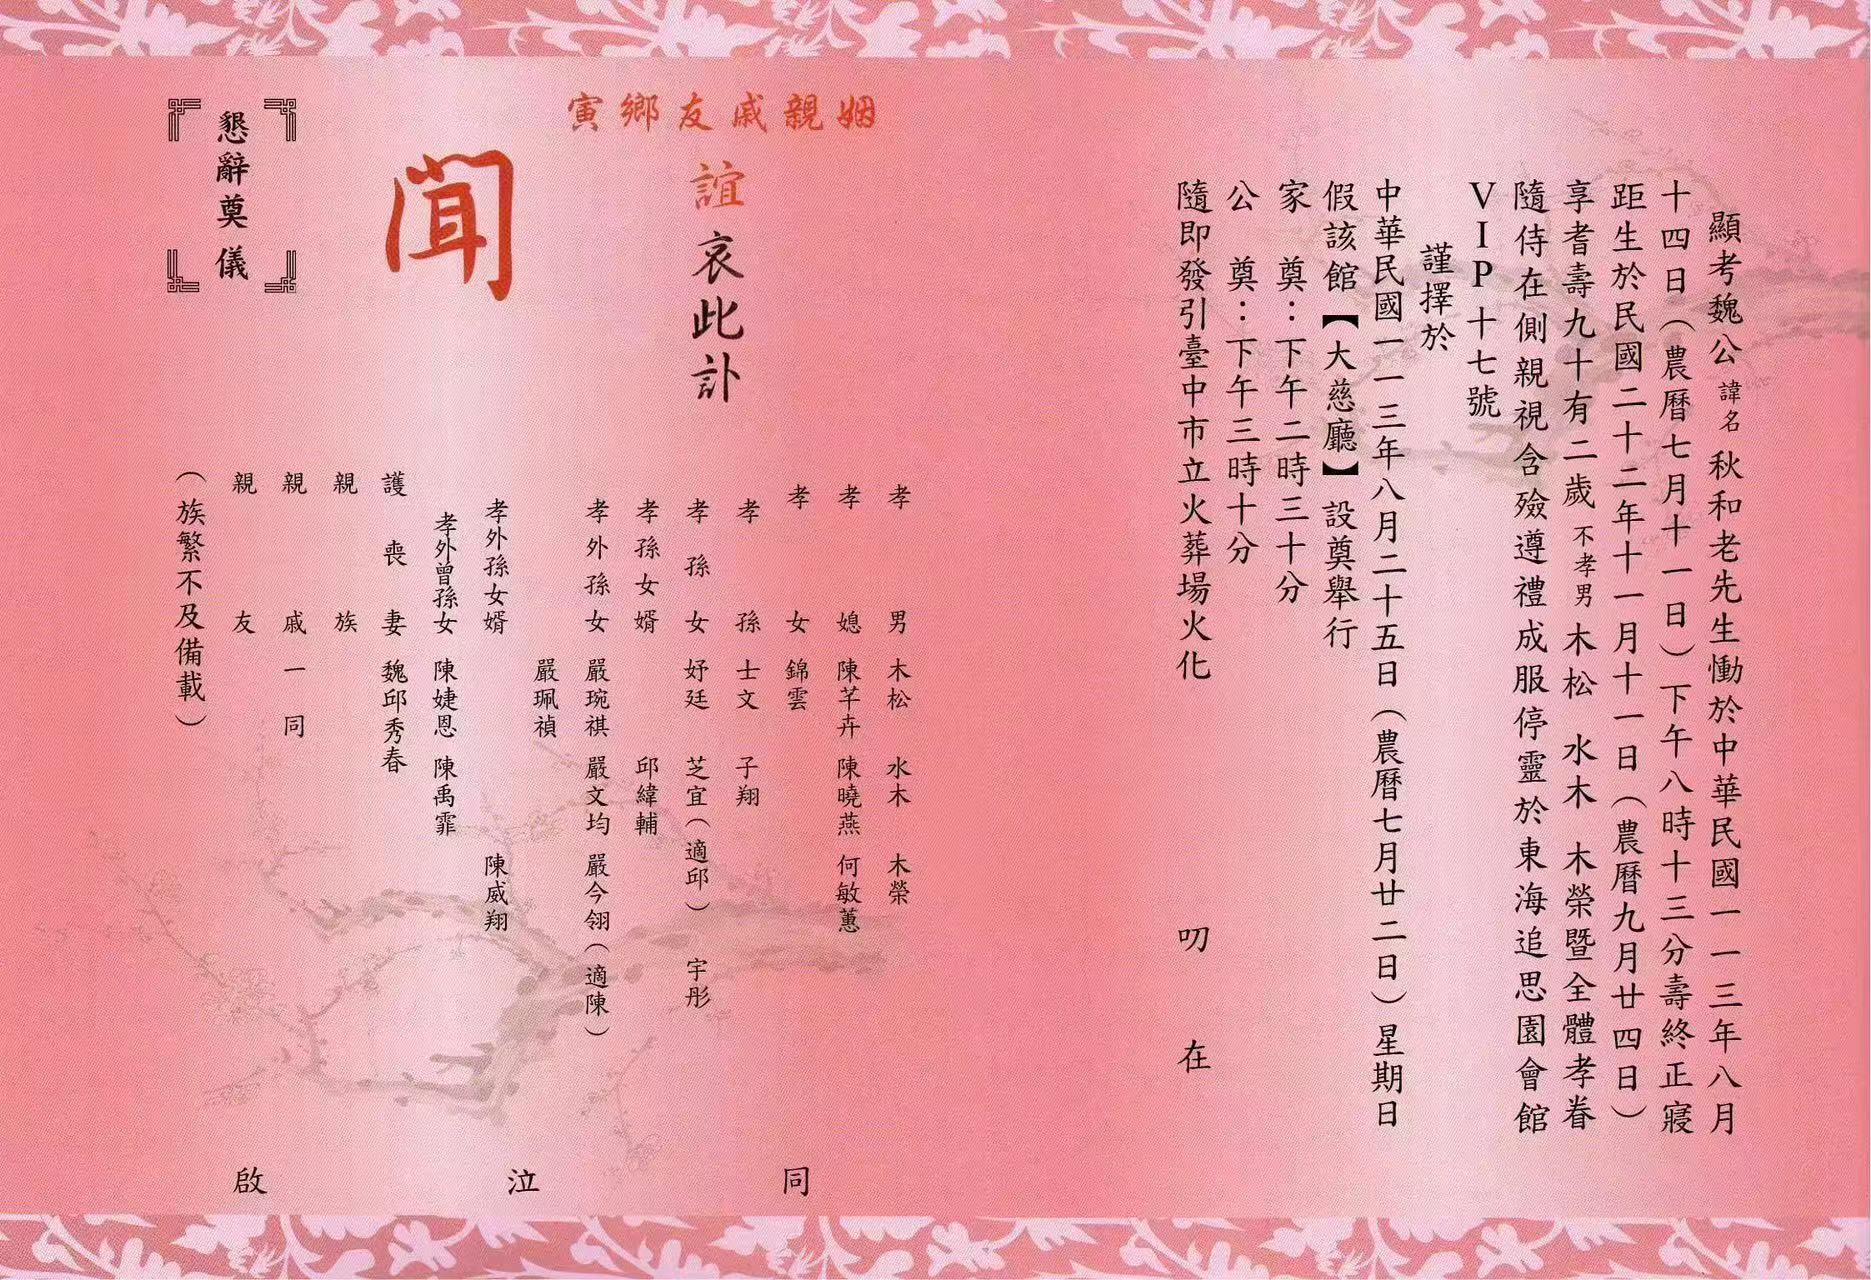 顯考魏公諱名秋和老先生慟於中華民國一一三年八月
十四日（農曆七月十一日）下午八時十三分壽終正寢
距生於民國二十二年十一月十一日（農曆九月廿四日）
享耆壽九十有二歲不孝男木松 水木 木榮暨全體孝眷
隨侍在側親視含殮遵禮成服停靈於東海追思園會館
VIP十七號
謹擇於
中華民國一一三年八月二十五日（農曆七月廿二日）星期日
假該館【大慈廳】設奠舉行
家 奠：下午二時三十分
公 奠：下午三時十分
隨即發引臺中市立火葬場火化
叨 在
姻親戚友鄉寅
誼 哀此訃
聞
懇辭奠儀
孝 男 木松 水木 木榮
孝 媳 陳芊卉 陳曉燕 何敏蕙
孝 女 錦雲
孝 孫 士文 子翔
孝孫女 妤廷 芝宜（適邱） 宇彤
孝孫女婿 邱緯輔
孝外孫女 嚴琬祺 嚴文均 嚴今翎（適陳）
嚴珮禎
孝外孫女婿 陳威翔
孝外曾孫女 陳婕恩 陳禹霏
護喪妻 魏邱秀春
親 族
親 戚 一 同
親 友
（族繁不及備載）
同 泣 啟